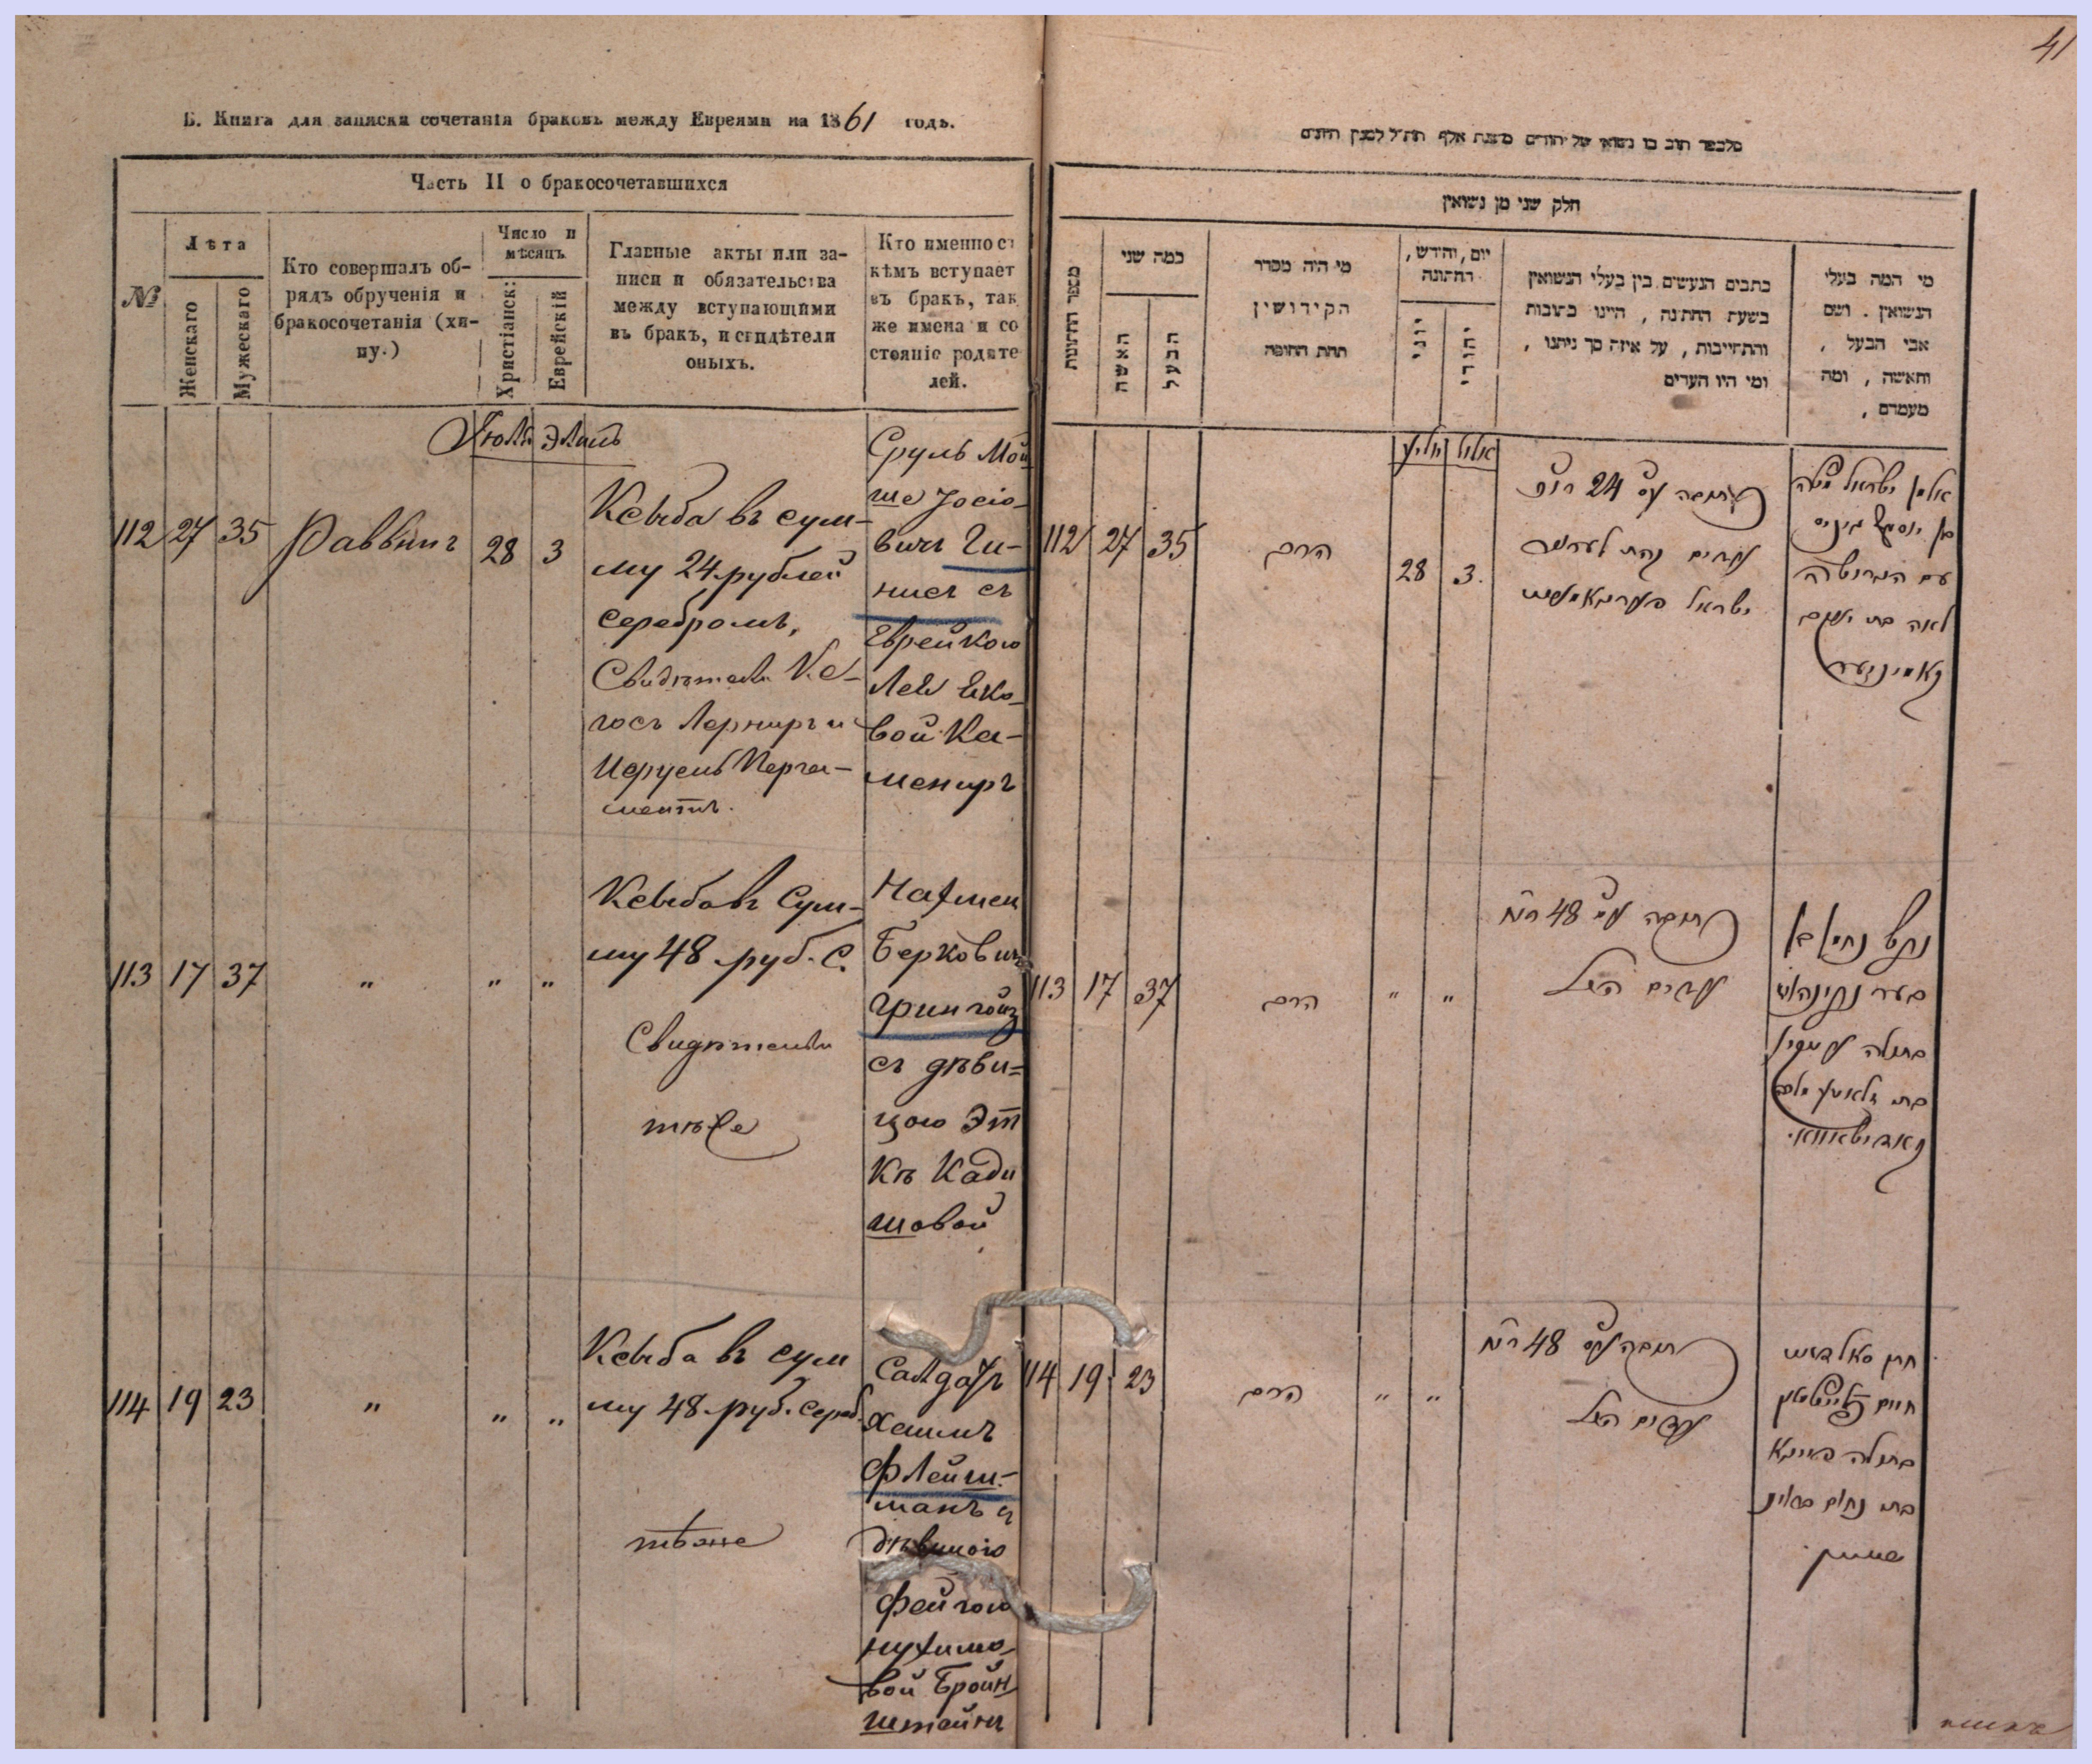 41
Б. Книга для записки сочетанія браковъ между Евреями на 1861 годъ.
Часть II о бракосочетавшихся
№
Лѣта
Женскаго
Мужескаго
Кто совершалъ об-
рядъ обрученія и
бракосочетанія (хи-
пу.)
Число и
мѣсяцъ
Христіанск:
Еврейскій
Главные акты или за-
писи и обязательства
между вступающими
въ бракъ, и свидѣтели
оныхъ.
Кто именно съ
кѣмъ вступает
въ бракъ, так
же имена и со
стояніе родите
лей.
Іюль Элиль
112 27 35 Раввинъ 28 3
Ксыба въ сум-
му 24 рублей
серебромъ,
Свидѣтели Ке-
Лерниръ и
Перга-
ментъ.
Сруль Мой
ше Іосіо-
вичъ Ги-
нисъ съ
Еврейкою
Леи Ико-
вой Ка-
мениръ
113 17 37 " " "
Ксыба въ Сум-
му 48 руб. С.
Свидѣтели
тѣже
Нахмен
Берковичъ
Грингойз
съ дѣви=
цою Эт
кѣ Кади
шовой
114 19 23 " " "
Ксыба въ сум
му 48 руб. сереб.
тѣже
Салдатъ
Хаимъ
Флейш-
манъ съ
дѣвицою
Фейгою
Нухимо-
вой Бройн
штейнъ
חלק שני מן נשואין
מספר החתונות
כמה שני
האשה
הבעל
מי היה מסדר
הקידושין
תחת החופה
יום, וחודש,
החתונה
יוני
יהודי
כתבים הנעשים בין בעלי הנשואין
בשעת החתונה, היינו כתובות
והתחייבות, על איזה סך ניתנו,
ומי היו העדים
מי המה בעלי
הנשואין. ושם
אבי הבעל,
והאשה, ומה
מעמדם,
יוליע אלול
112 27 35 הרב 28 3.
כתובה עס 24 רוכ
ישראל
אלמן ישראל משה
בן יוסף גיניס
עם הגרושה
לאה בת יעקב
קאמינער
113 17 37 הרב " "
כתובה עס 48
עדים הנ"ל
בתולה
בת
114 19 23 הרב " "
כתובה עס 48
עדים הנ"ל
חתן סאלדאט
חיים פליישמאן
בתולה פייגא
בת נחום ברוינ
שטיין